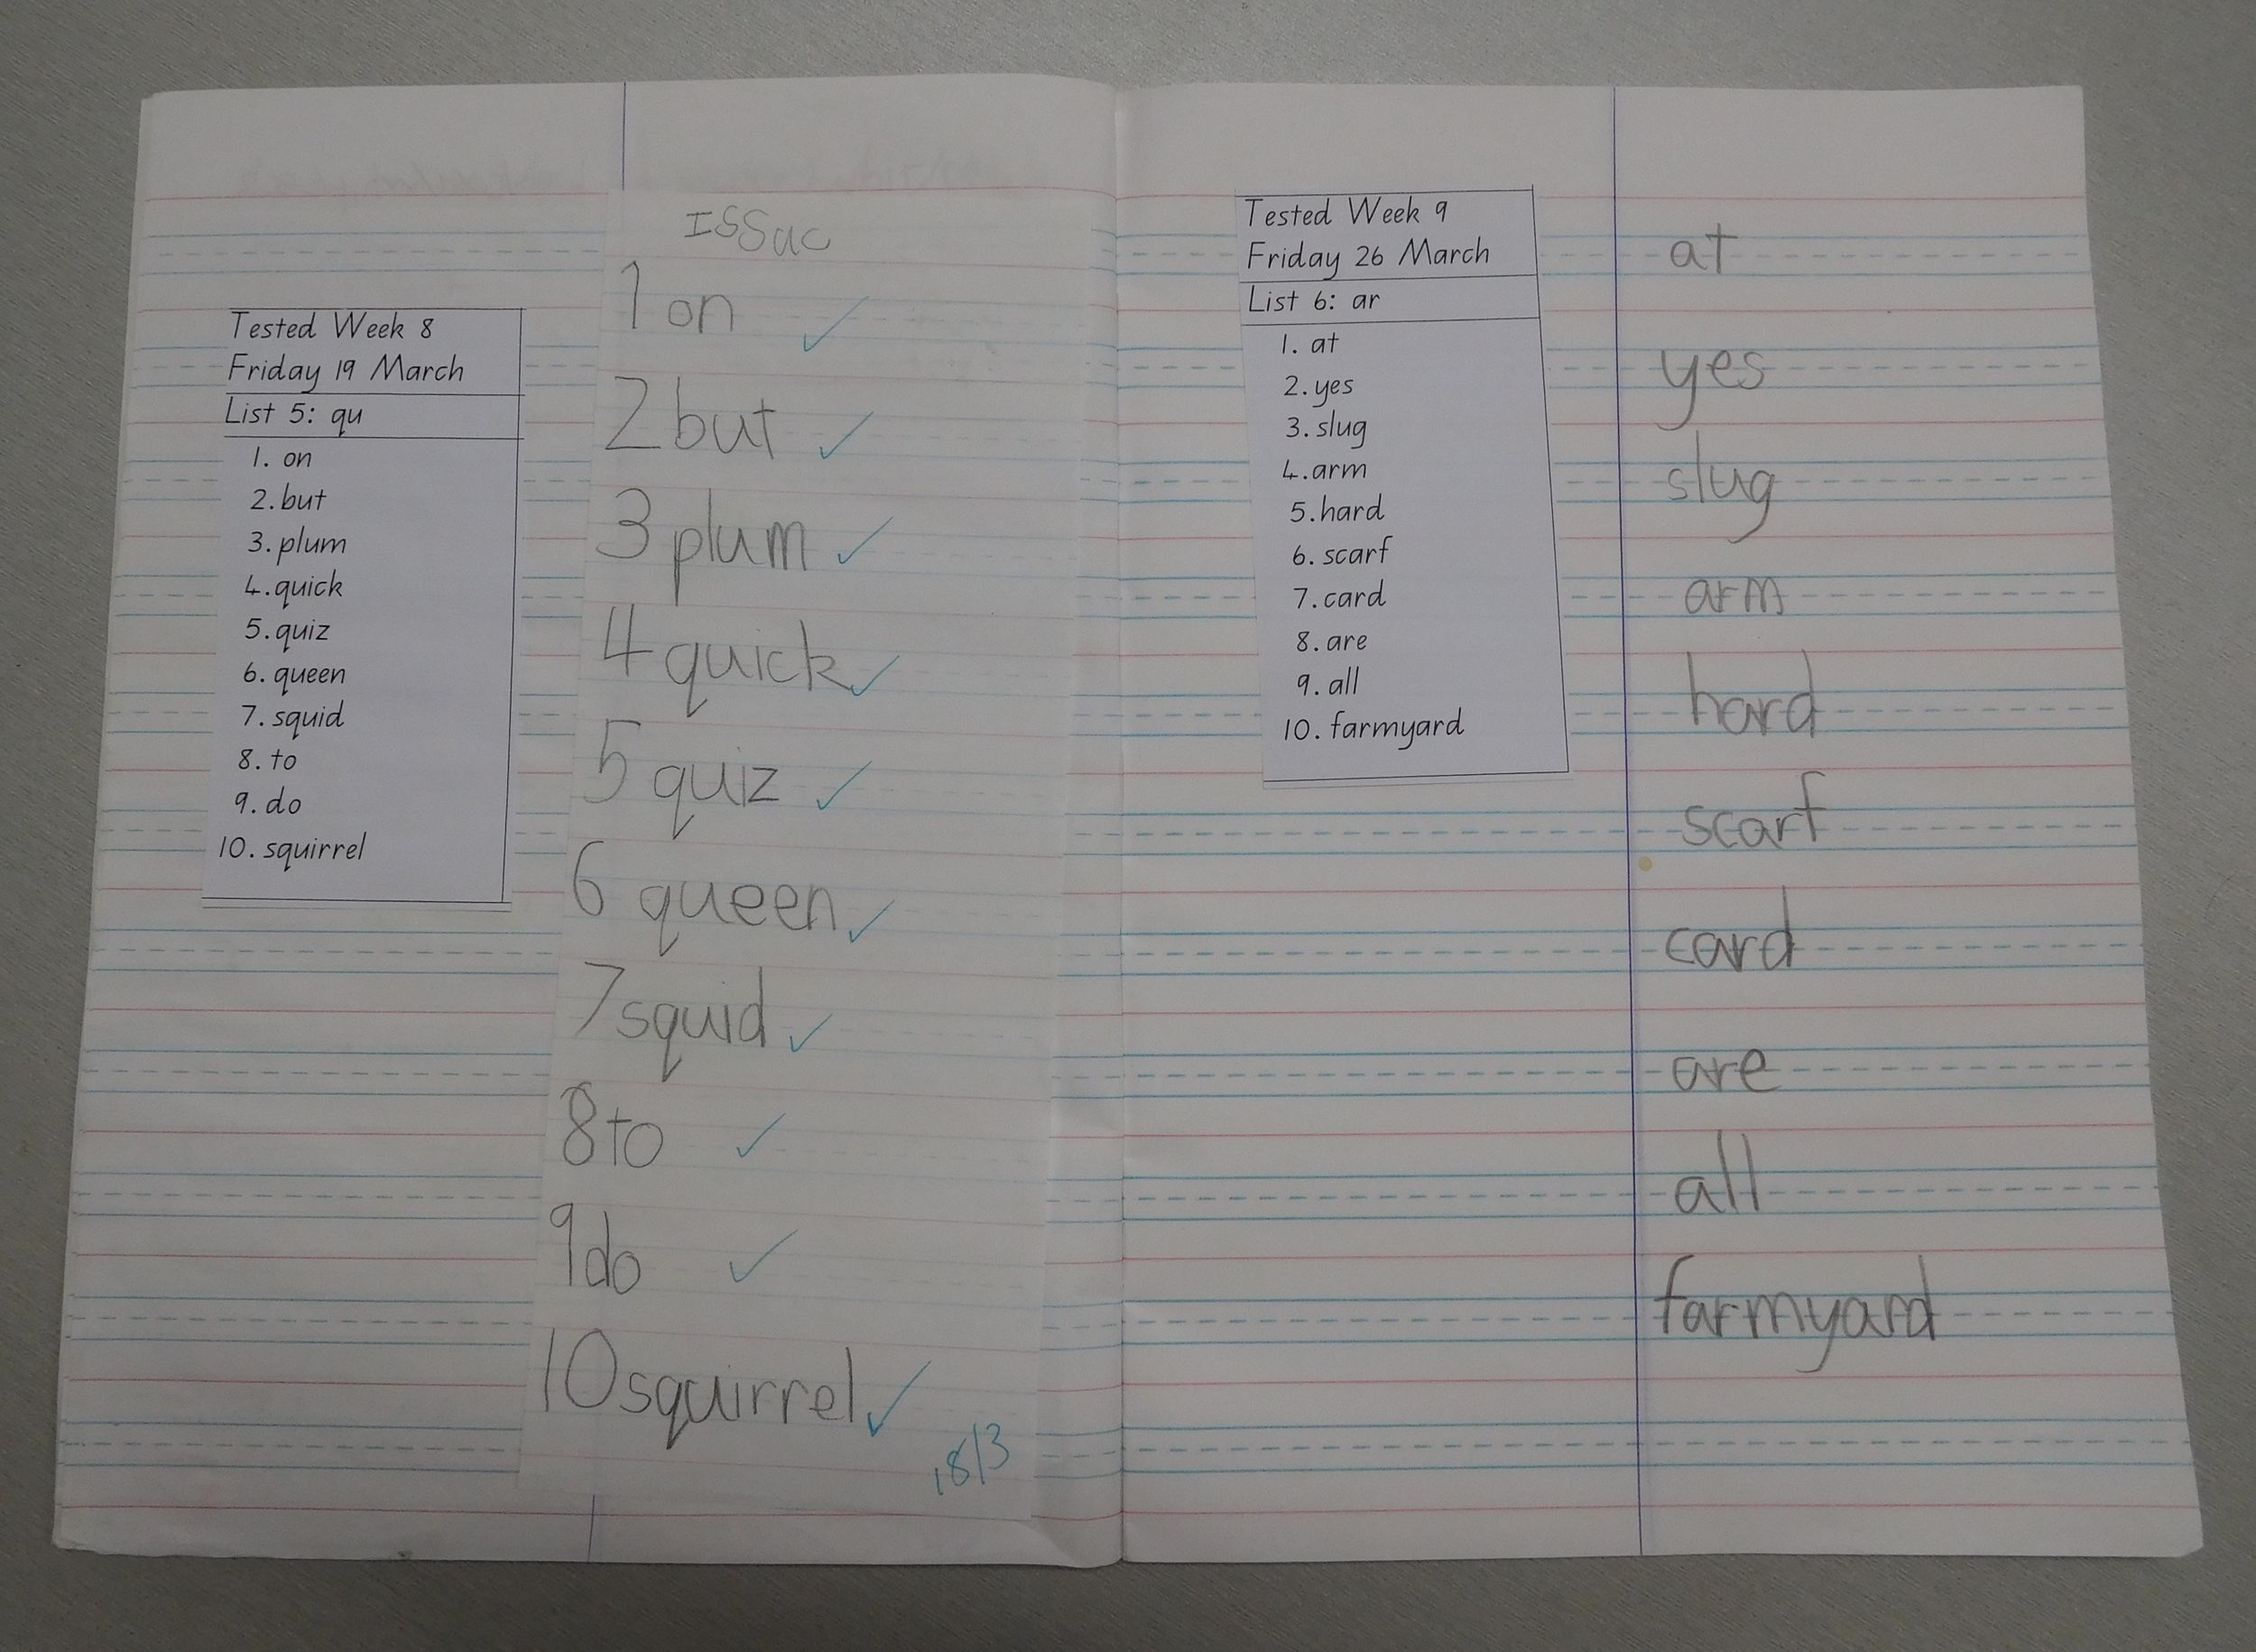 Tested Week 8
Friday 19 March
List 5: qu
1. on
2. but
3. plum
4. quick
5. quiz
6. queen
7. squid
8. to
9. do
10. squirrel
Issac
1 on
2 but
3 plum
4 quick
5 quiz
6 queen
7 squid
8 to
9 do
10 squirrel
18/3
Tested Week 9
Friday 26 March
List 6: ar
1. at
2. yes
3. slug
4. arm
5. hard
6. scarf
7. card
8. are
9. all
10. farmyard
at
yes
slug
arm
hard
scarf
card
are
all
farmyard